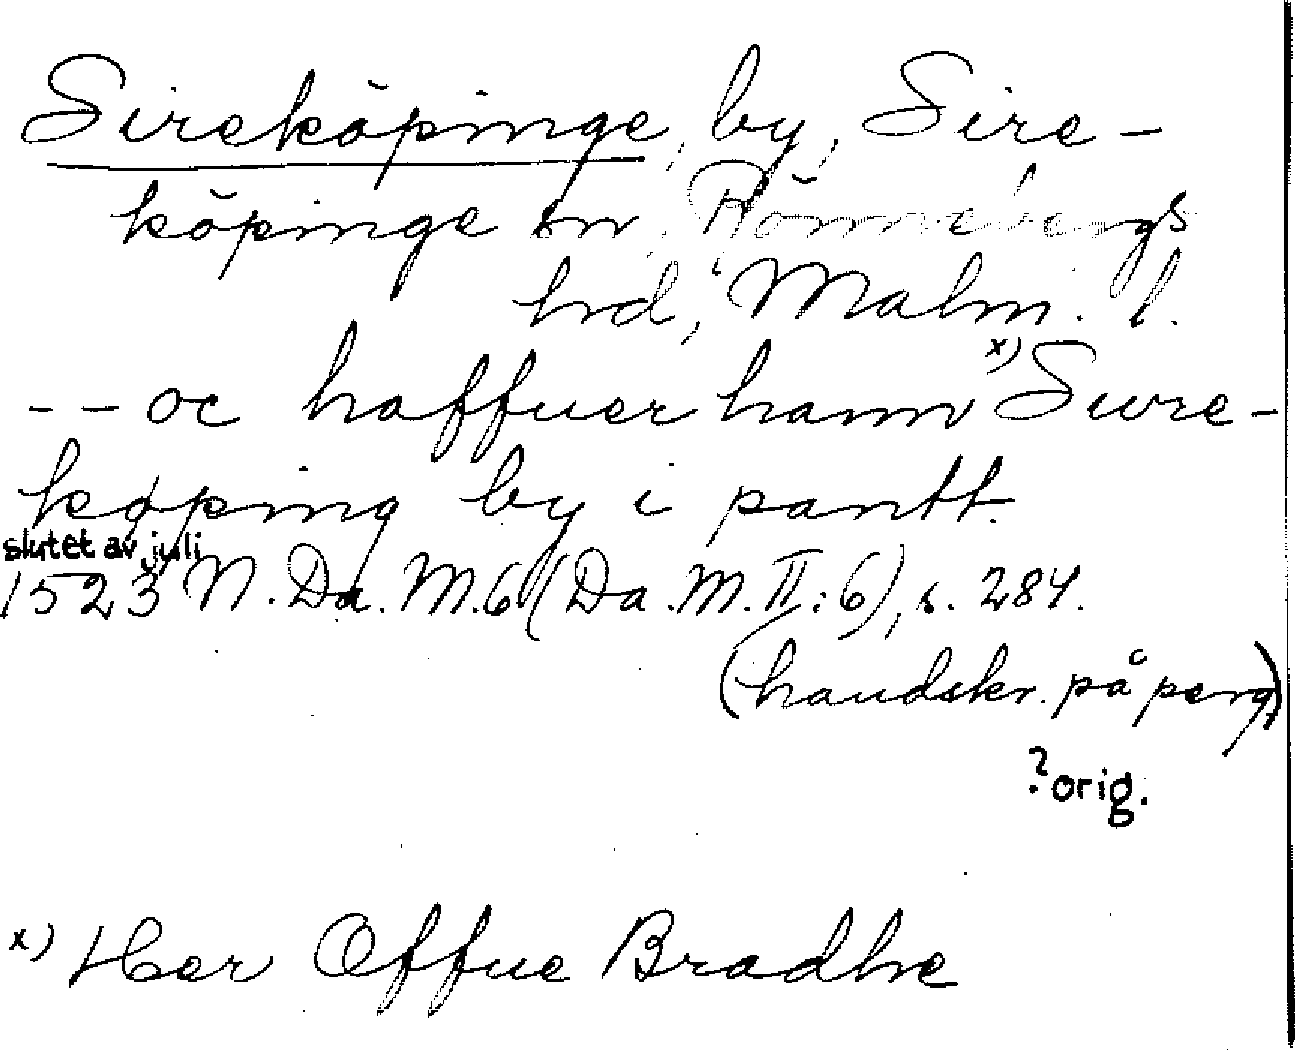 Sireköpinge, by, Sire-
köpinge sn, Rönnebergs
hrd, Malm. l.
-- oc haffuer hann x) Swre-
køping by i pantt.
slutet av juli
1523 N. Da. M. 6 (Da. M. II: 6), s. 284.
(handskr. på perg.)
? orig.
x) Her Offue Bradhe